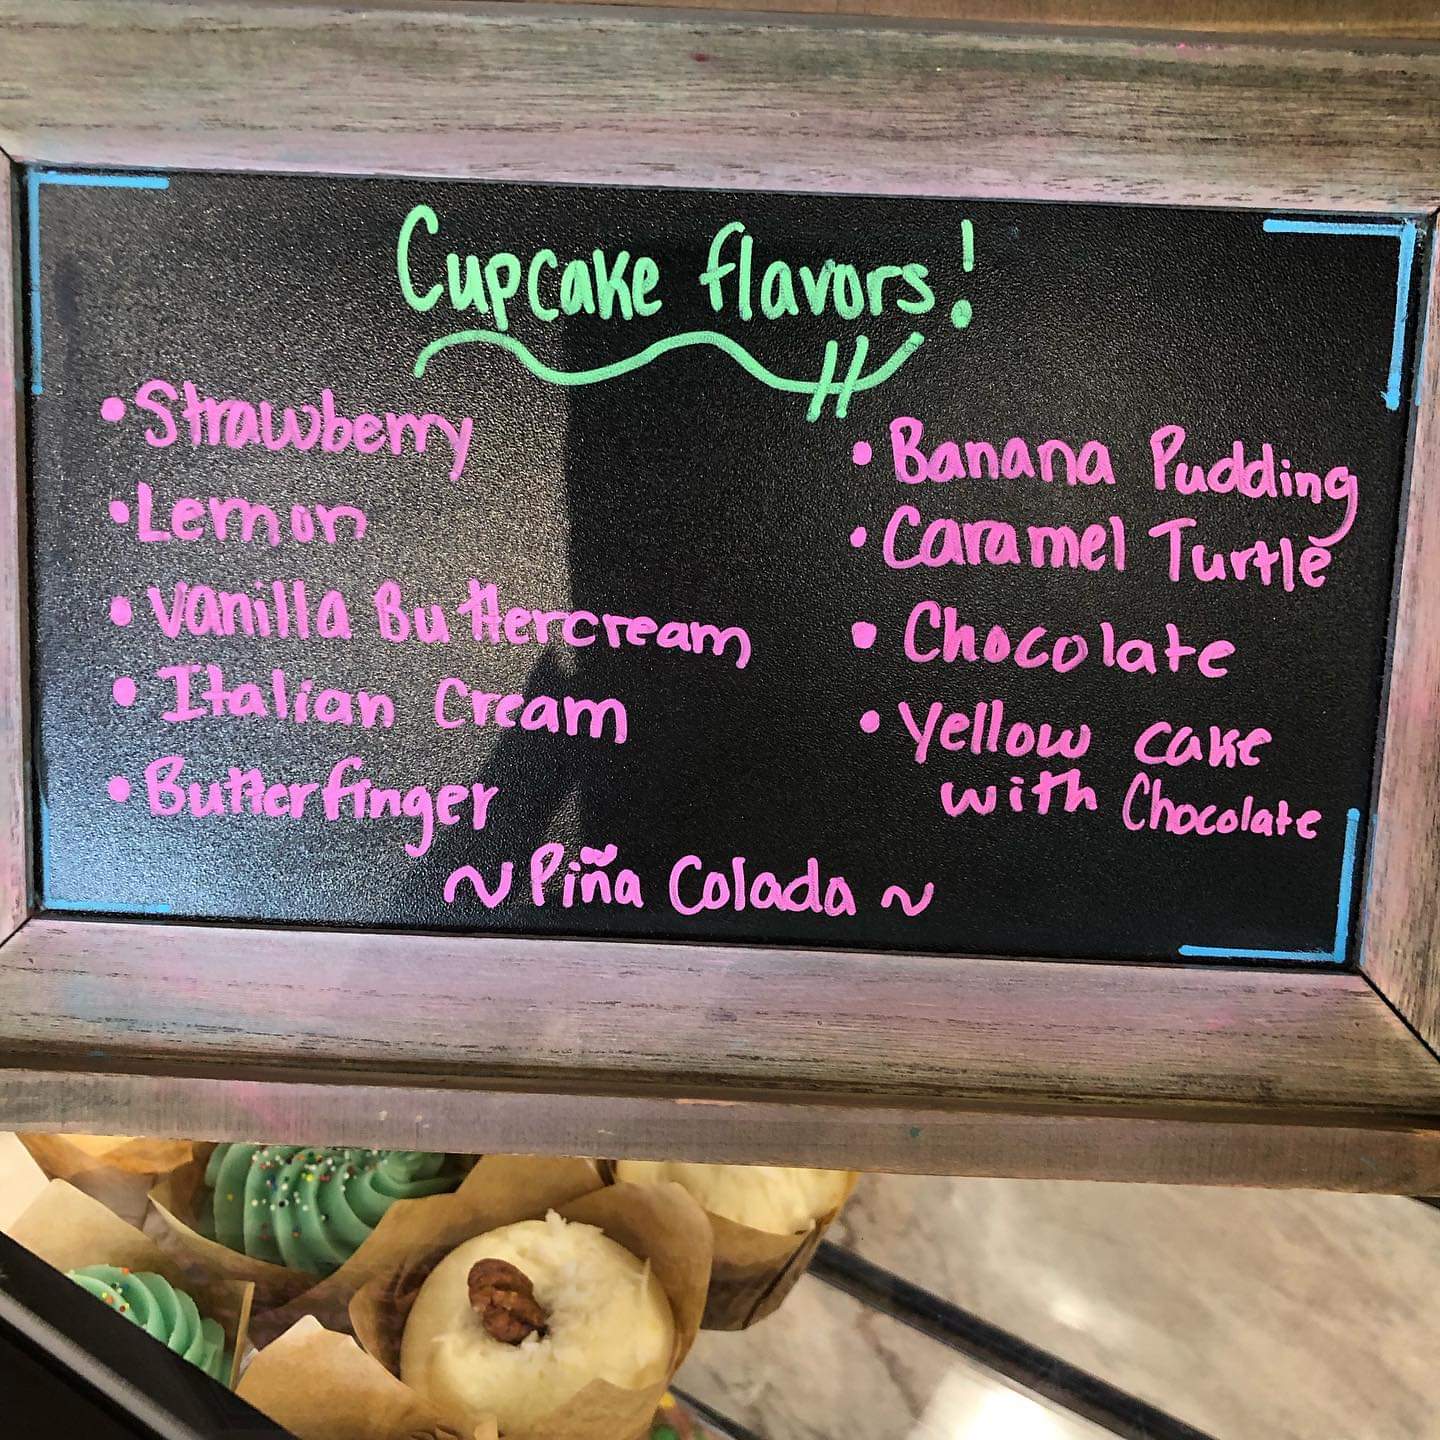 Cupcake flavors!
• Strawberry
• Lemon
• Vanilla Buttercream
• Italian Cream
• Butterfinger
• Banana Pudding
• Caramel Turtle
• Chocolate
• Yellow cake
with Chocolate
~ Piña Colada ~